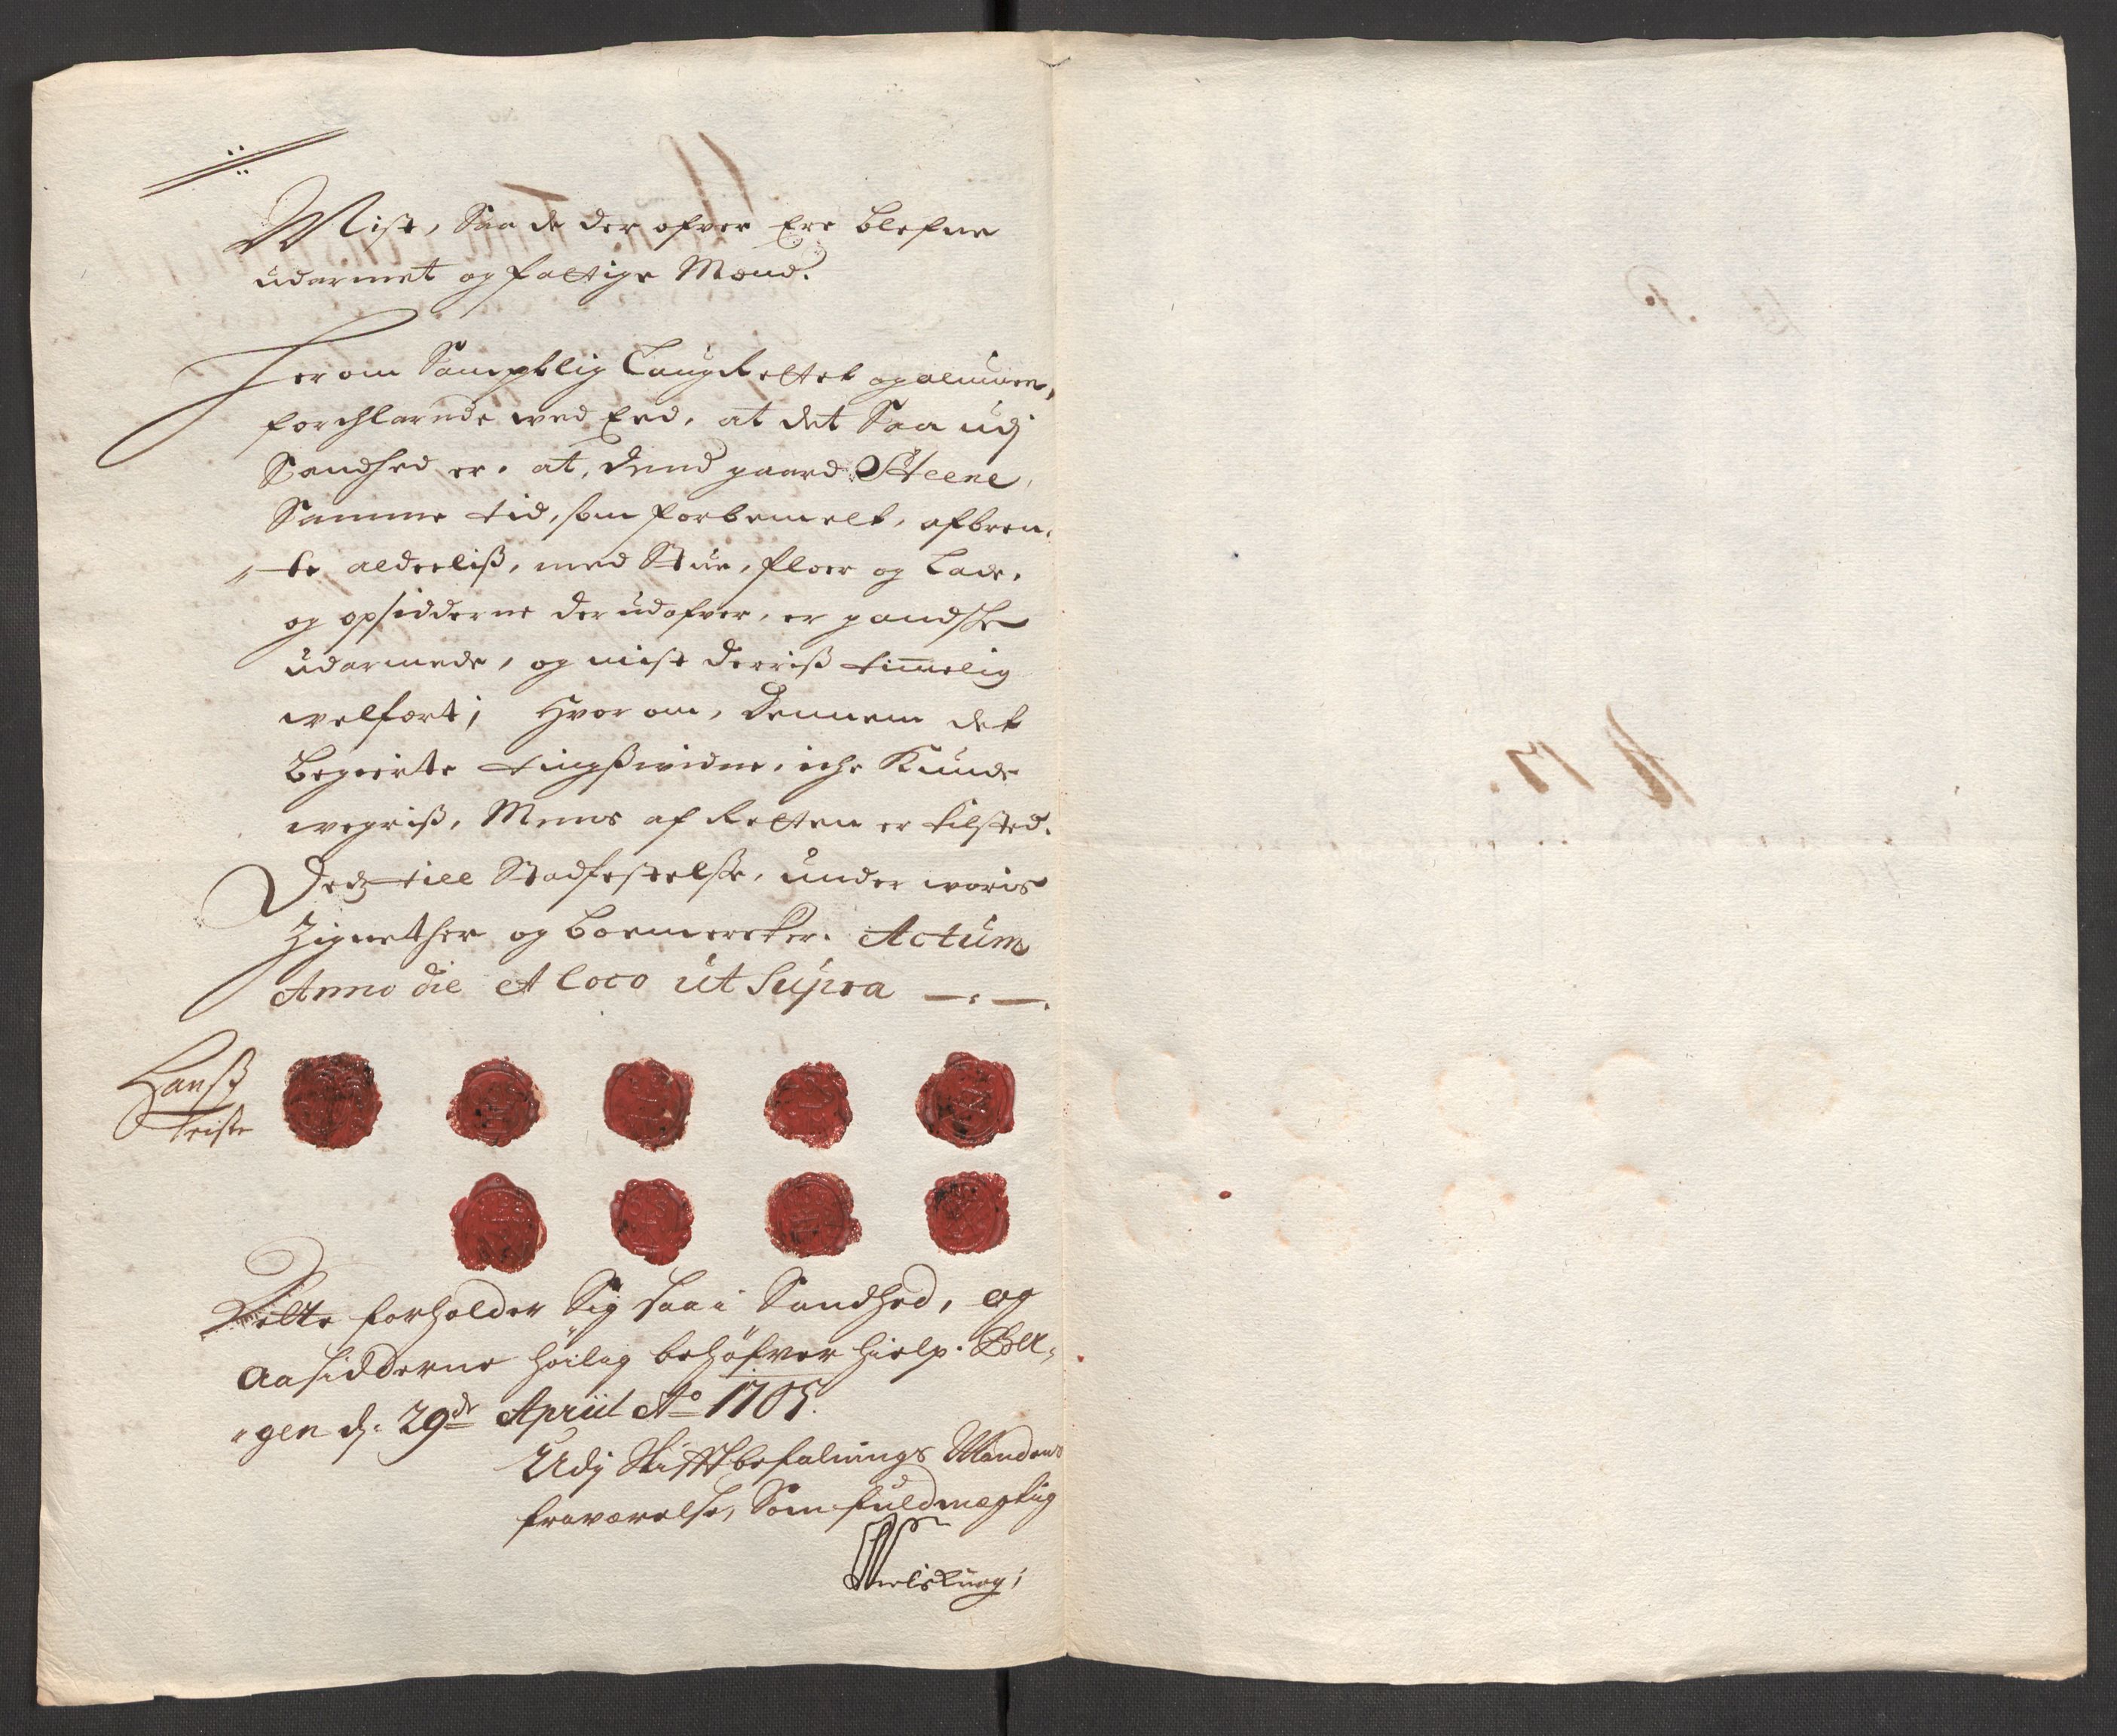 Mist, Saa de der ofver Ere blefne
udarmet og fattige Mænd.
Herom Samptlig Laugrettet og almuen,
forchlarede wed Eed, at det Saa udj
Sandhed er, at, dend gaard Steene,
Samme tid, som forbemelt, afbren-
te alderliß, med Stue, floer og Lade,
og opsidderne der udofver, er gandske
udarmede, og mist derriß timelig
welfært; Hvor om, Dennem det
begierte tingßwidne, iche Kunde
wegriß, Mens af Retten er tilsted.
Dets till Stadfestelße, under woris
Zignether og boemercker. Actum
Anno die et loco ut supra
Hanß
Friste
Dette forholder Sig saa i Sandhed, og
aasidderne höilig behöfver hielp. Ber-
gen dj. 29de Apriil Ao 1705.
Udj Stifftbefalnings Mandens
fraværelse, Som fuldmægtig
Niels Knag;
N 17.